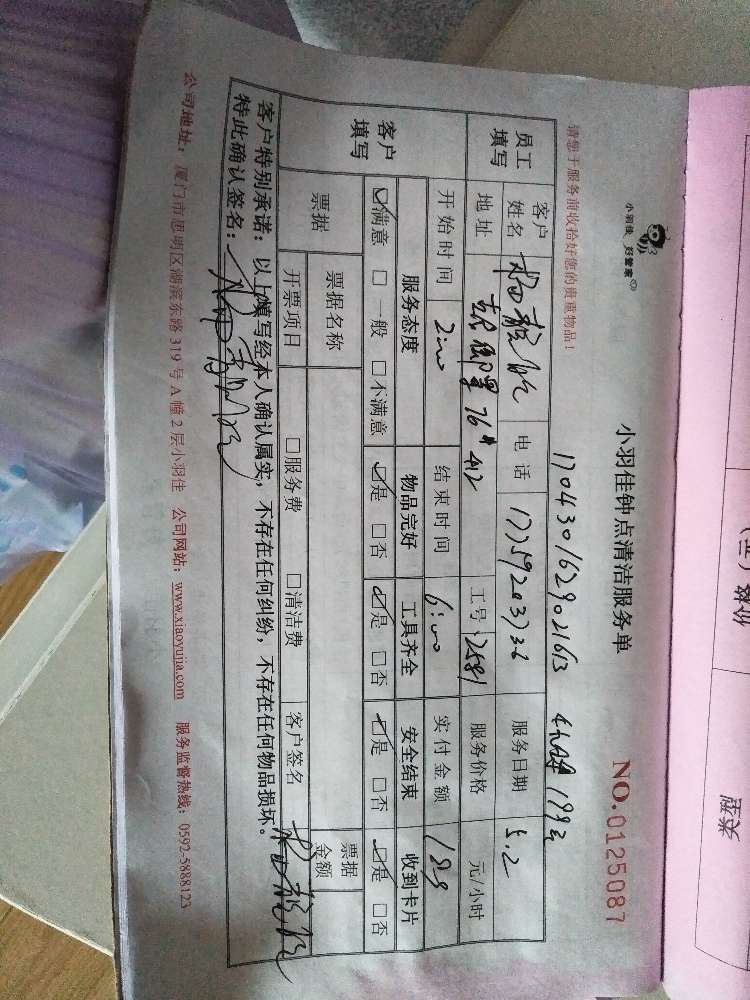 小羽佳 好管家
小羽佳钟点清洁服务单
NO.0125087
请您于服务前收拾好您的贵重物品！
员工填写
客户姓名 电话 17759203736 服务日期 5.2
地址 76# 412 工号 2581 服务价格 元/小时
开始时间 2:00 结束时间 6:00 实付金额
客户填写
服务态度 物品完好 工具齐全 安全结束 收到卡片
☑满意 □一般 □不满意 ☑是 □否 ☑是 □否 ☑是 □否 ☑是 □否
票据 票据名称 票据金额
开票项目 □服务费 □清洁费 客户签名
客户特别承诺：以上填写经本人确认属实，不存在任何纠纷，不存在任何物品损坏。
特此确认签名：
公司地址：厦门市思明区湖滨东路319号A幢2层小羽佳 公司网站：www.xiaoyujia.com 服务监督热线：0592-5888123
类型